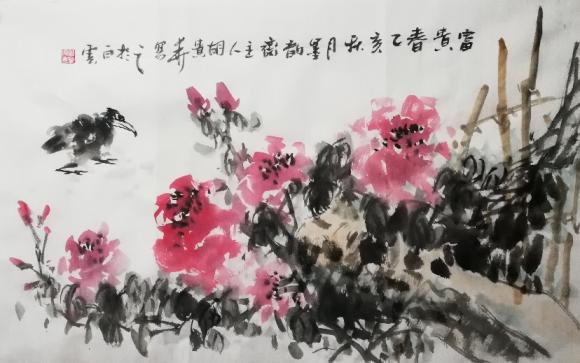 富貴春乙亥秋月墨韵齋主人胡貴寫之於白雲